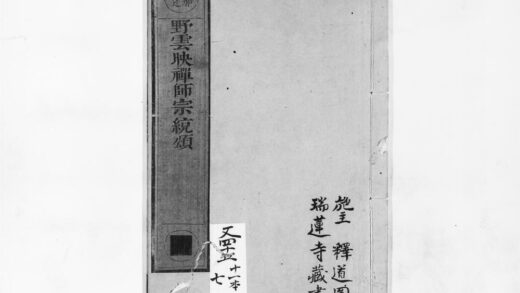 野雲映禪師宗統頌
施主 釋道圓
瑞蓮寺藏書
十一本
七